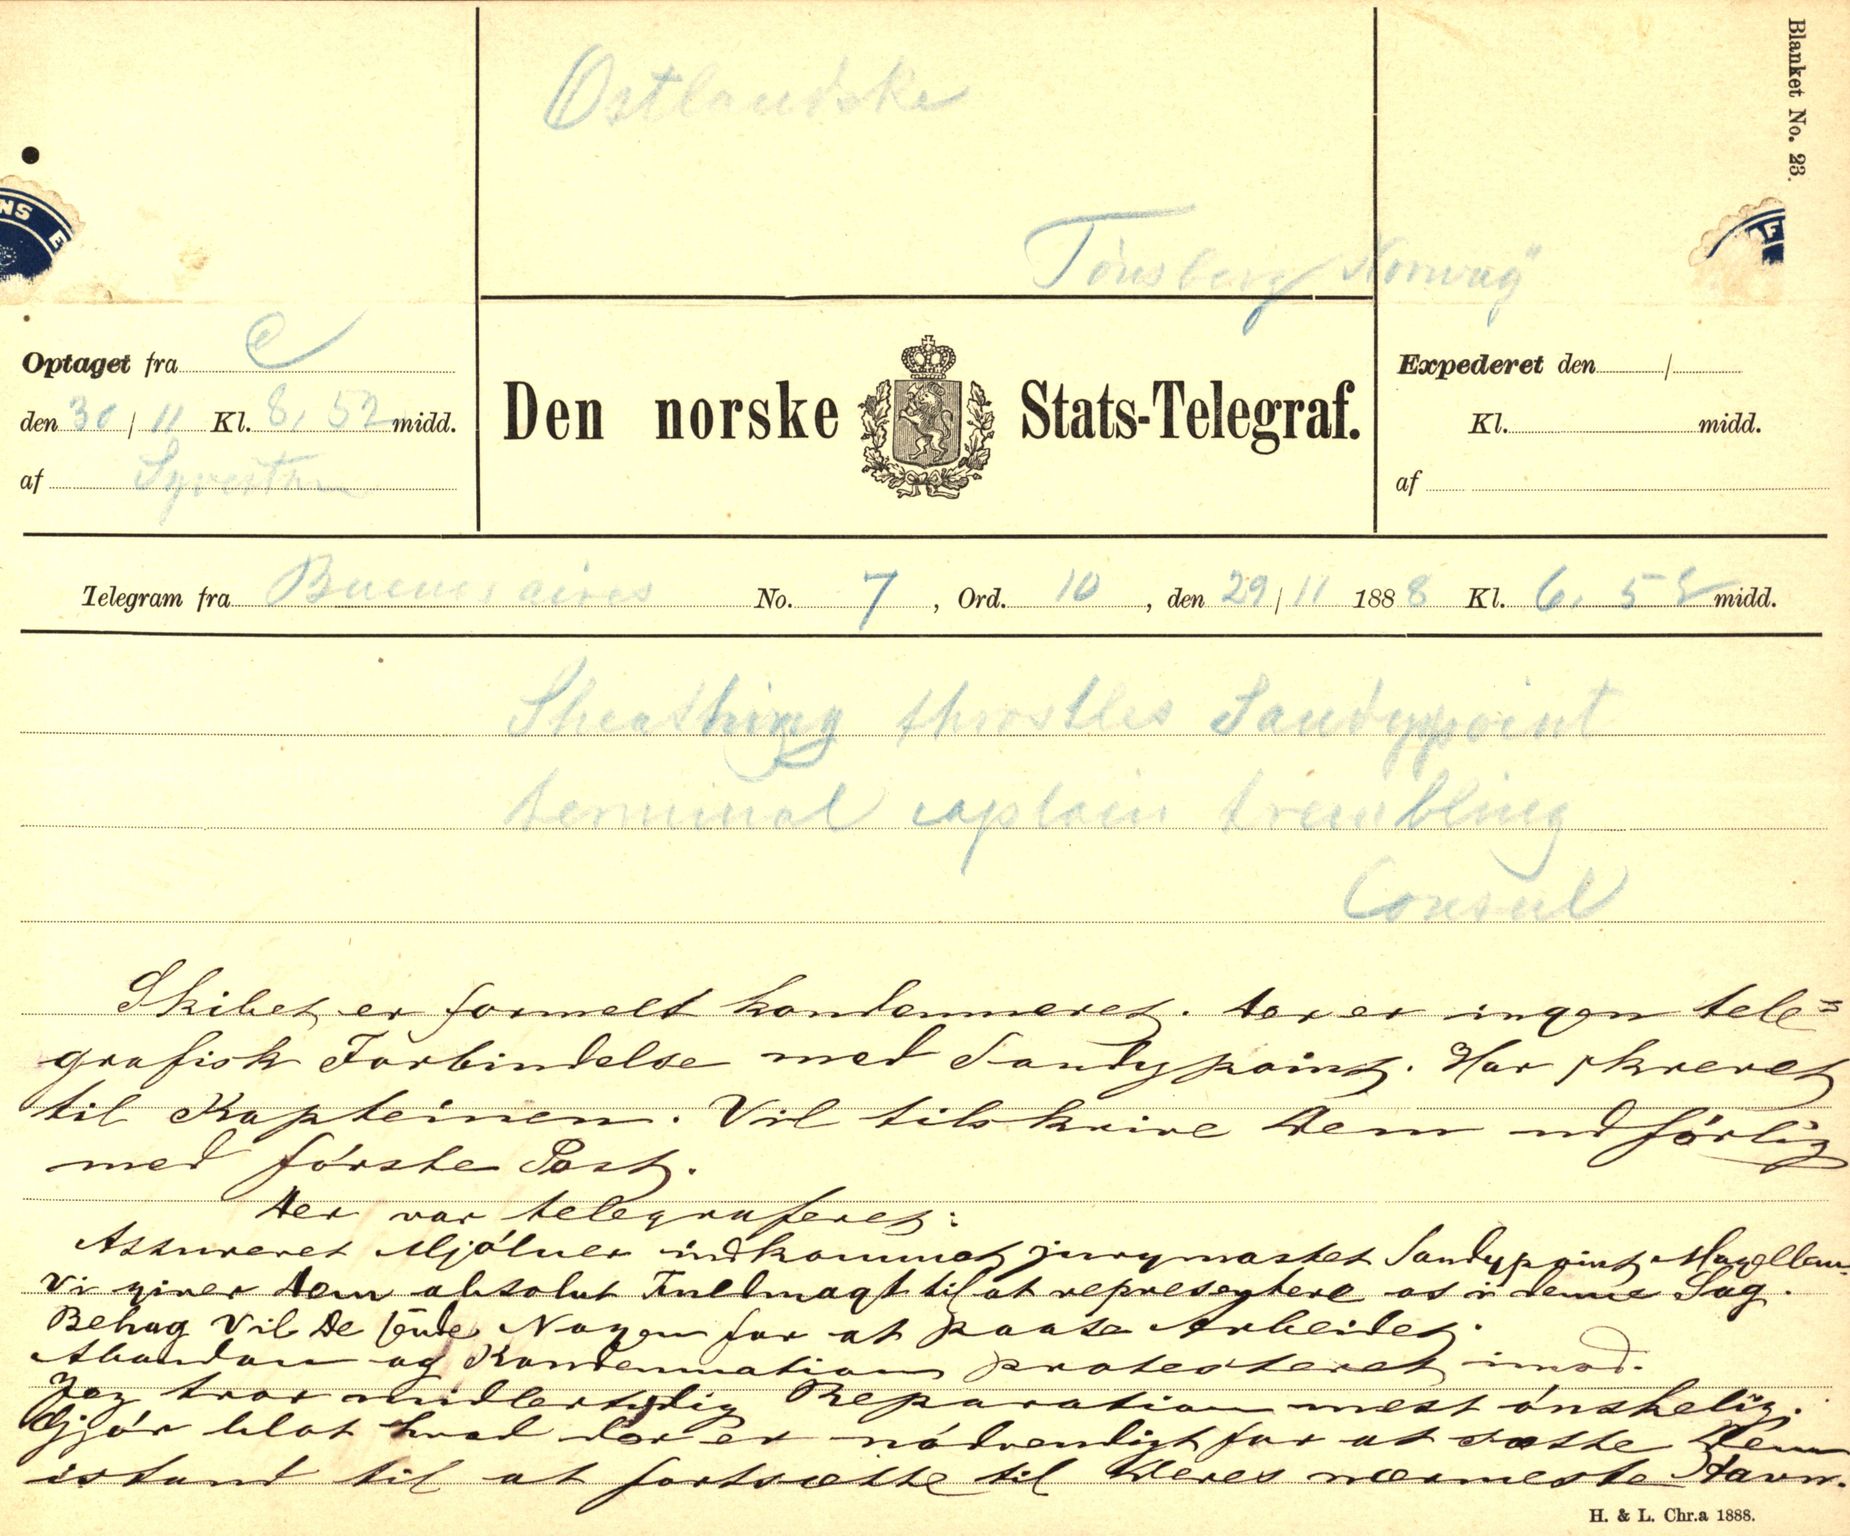 Blanket No. 23.
Ostlandske
Tönsberg Norway
NS E
AF
Optaget fra C
den 30 / 11 Kl. 8,52 midd.
af
Den norske Stats-Telegraf.
Expederet den /
Kl. midd.
af
Telegram fra Buenosaires No. 7, Ord. 10, den 29/11 1888 Kl. 6,52 midd.
Sheathing throstles Sandypoint
terminal captain trembling
Consul
Skibet er formelt kondemneret. Der er ingen tele=
grafisk Forbindelse med Sandypoint. Har skrevet
til Kapteinen. Vil tilskrive Dem udförlig
med förste Post.
Der var telegraferet:
Assureret Mjölner indkommet jurymastet Sandypoint Magellan.
Vi giver Dem absolut Fuldmagt til at representere os i denne Sag.
Behag Vil De sende Nogen for at paase Arbeidet.
Abandon og Kondemnation protesteret imod.
Jeg tror midlertidig Reparation mest önskelig.
Gjör blot hvad der er nödvendigt for at sætte Dem
istand til at fortsætte til Deres nærmeste Havn.
H. & L. Chr.a 1888.